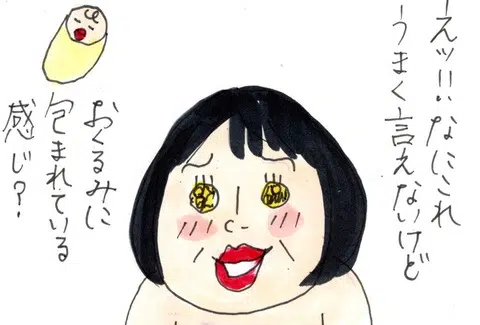 えッ!!いなにこれ
うまく言えないけど
おくるみに
包まれている
感じ?